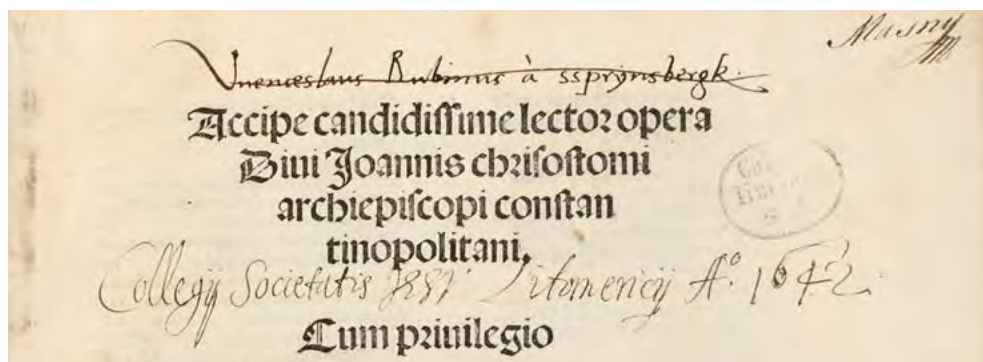 Masny
Vuenceslaus Rubinus à ssprynsbergk.
Accipe candidissime lector opera
Diui Joannis chrisostomi
archiepiscopi constan
tinopolitani.
Collegij Societatis Jesu Litomericij Aº. 1642.
Cum priuilegio